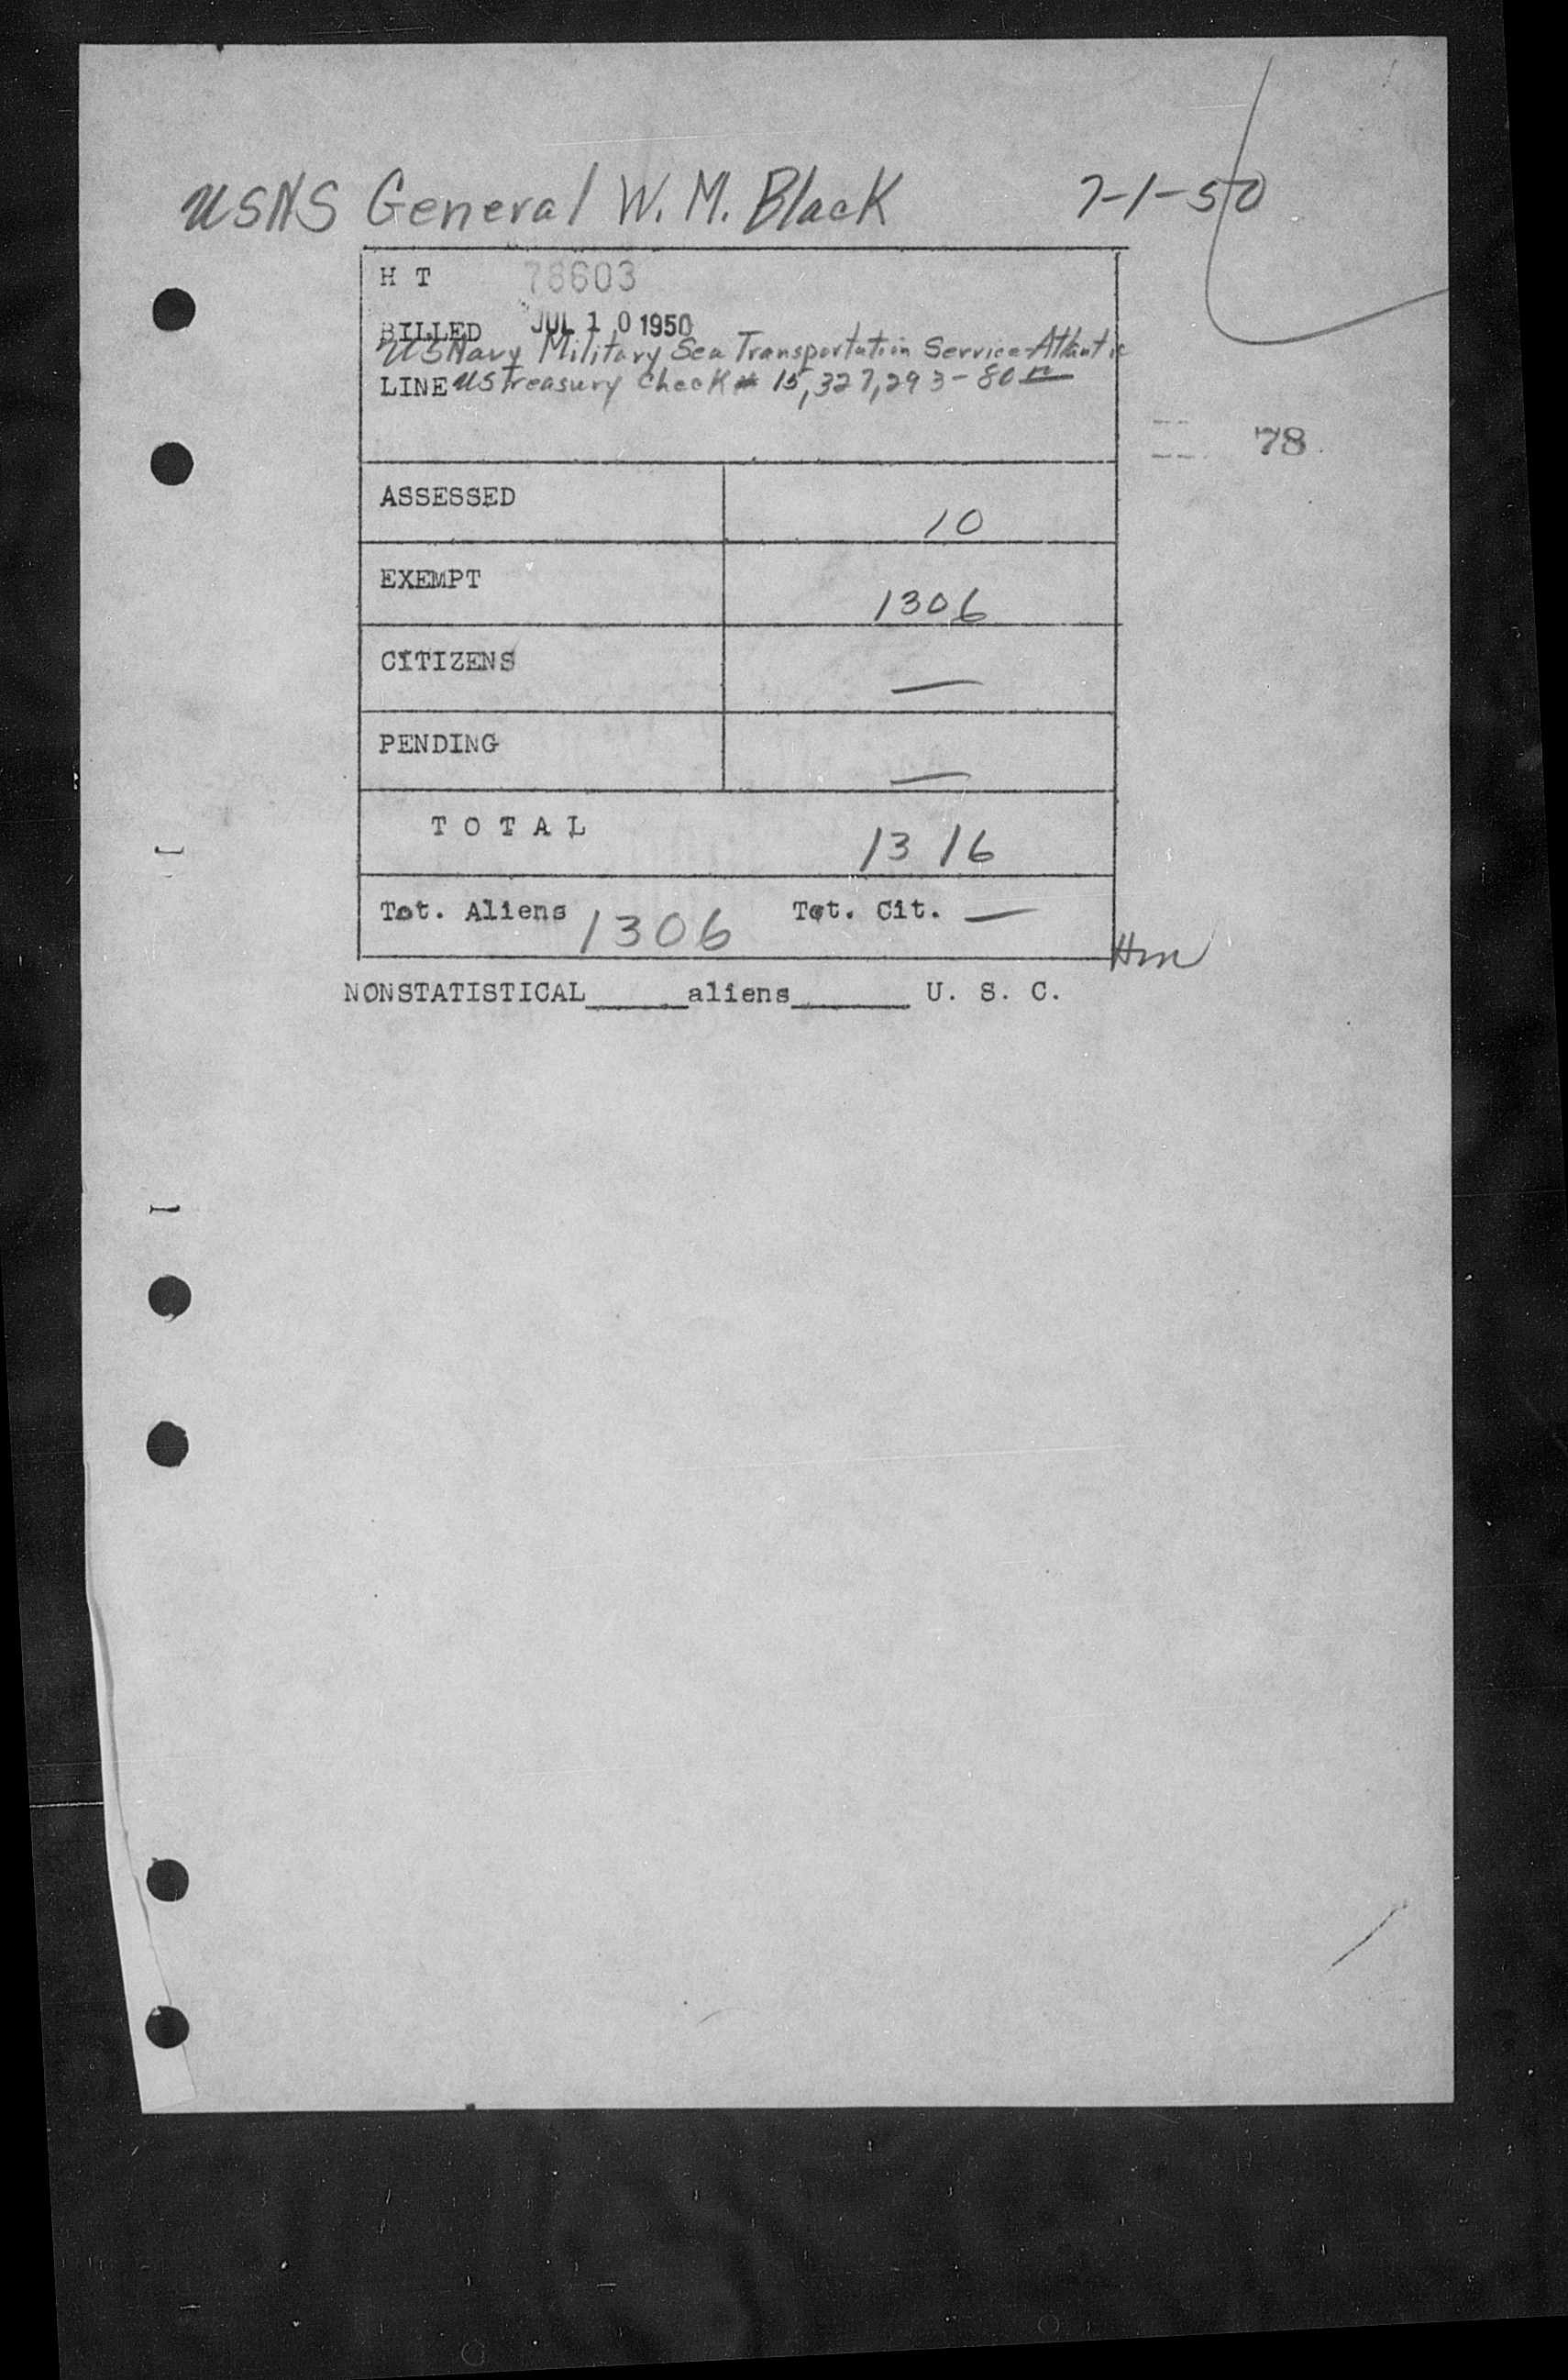 USNS General W. M. Black 7-1-50
H T 78603
BILLED JUL 10 1950
US Navy Military Sea Transportation Service-Atlantic
LINE US Treasury Check # 15,327,293 - 80
78
ASSESSED 10
EXEMPT 1306
CITIZENS —
PENDING —
T O T A L 1316
Tot. Aliens 1306 Tot. Cit. —
NONSTATISTICAL______aliens_______ U. S. C.